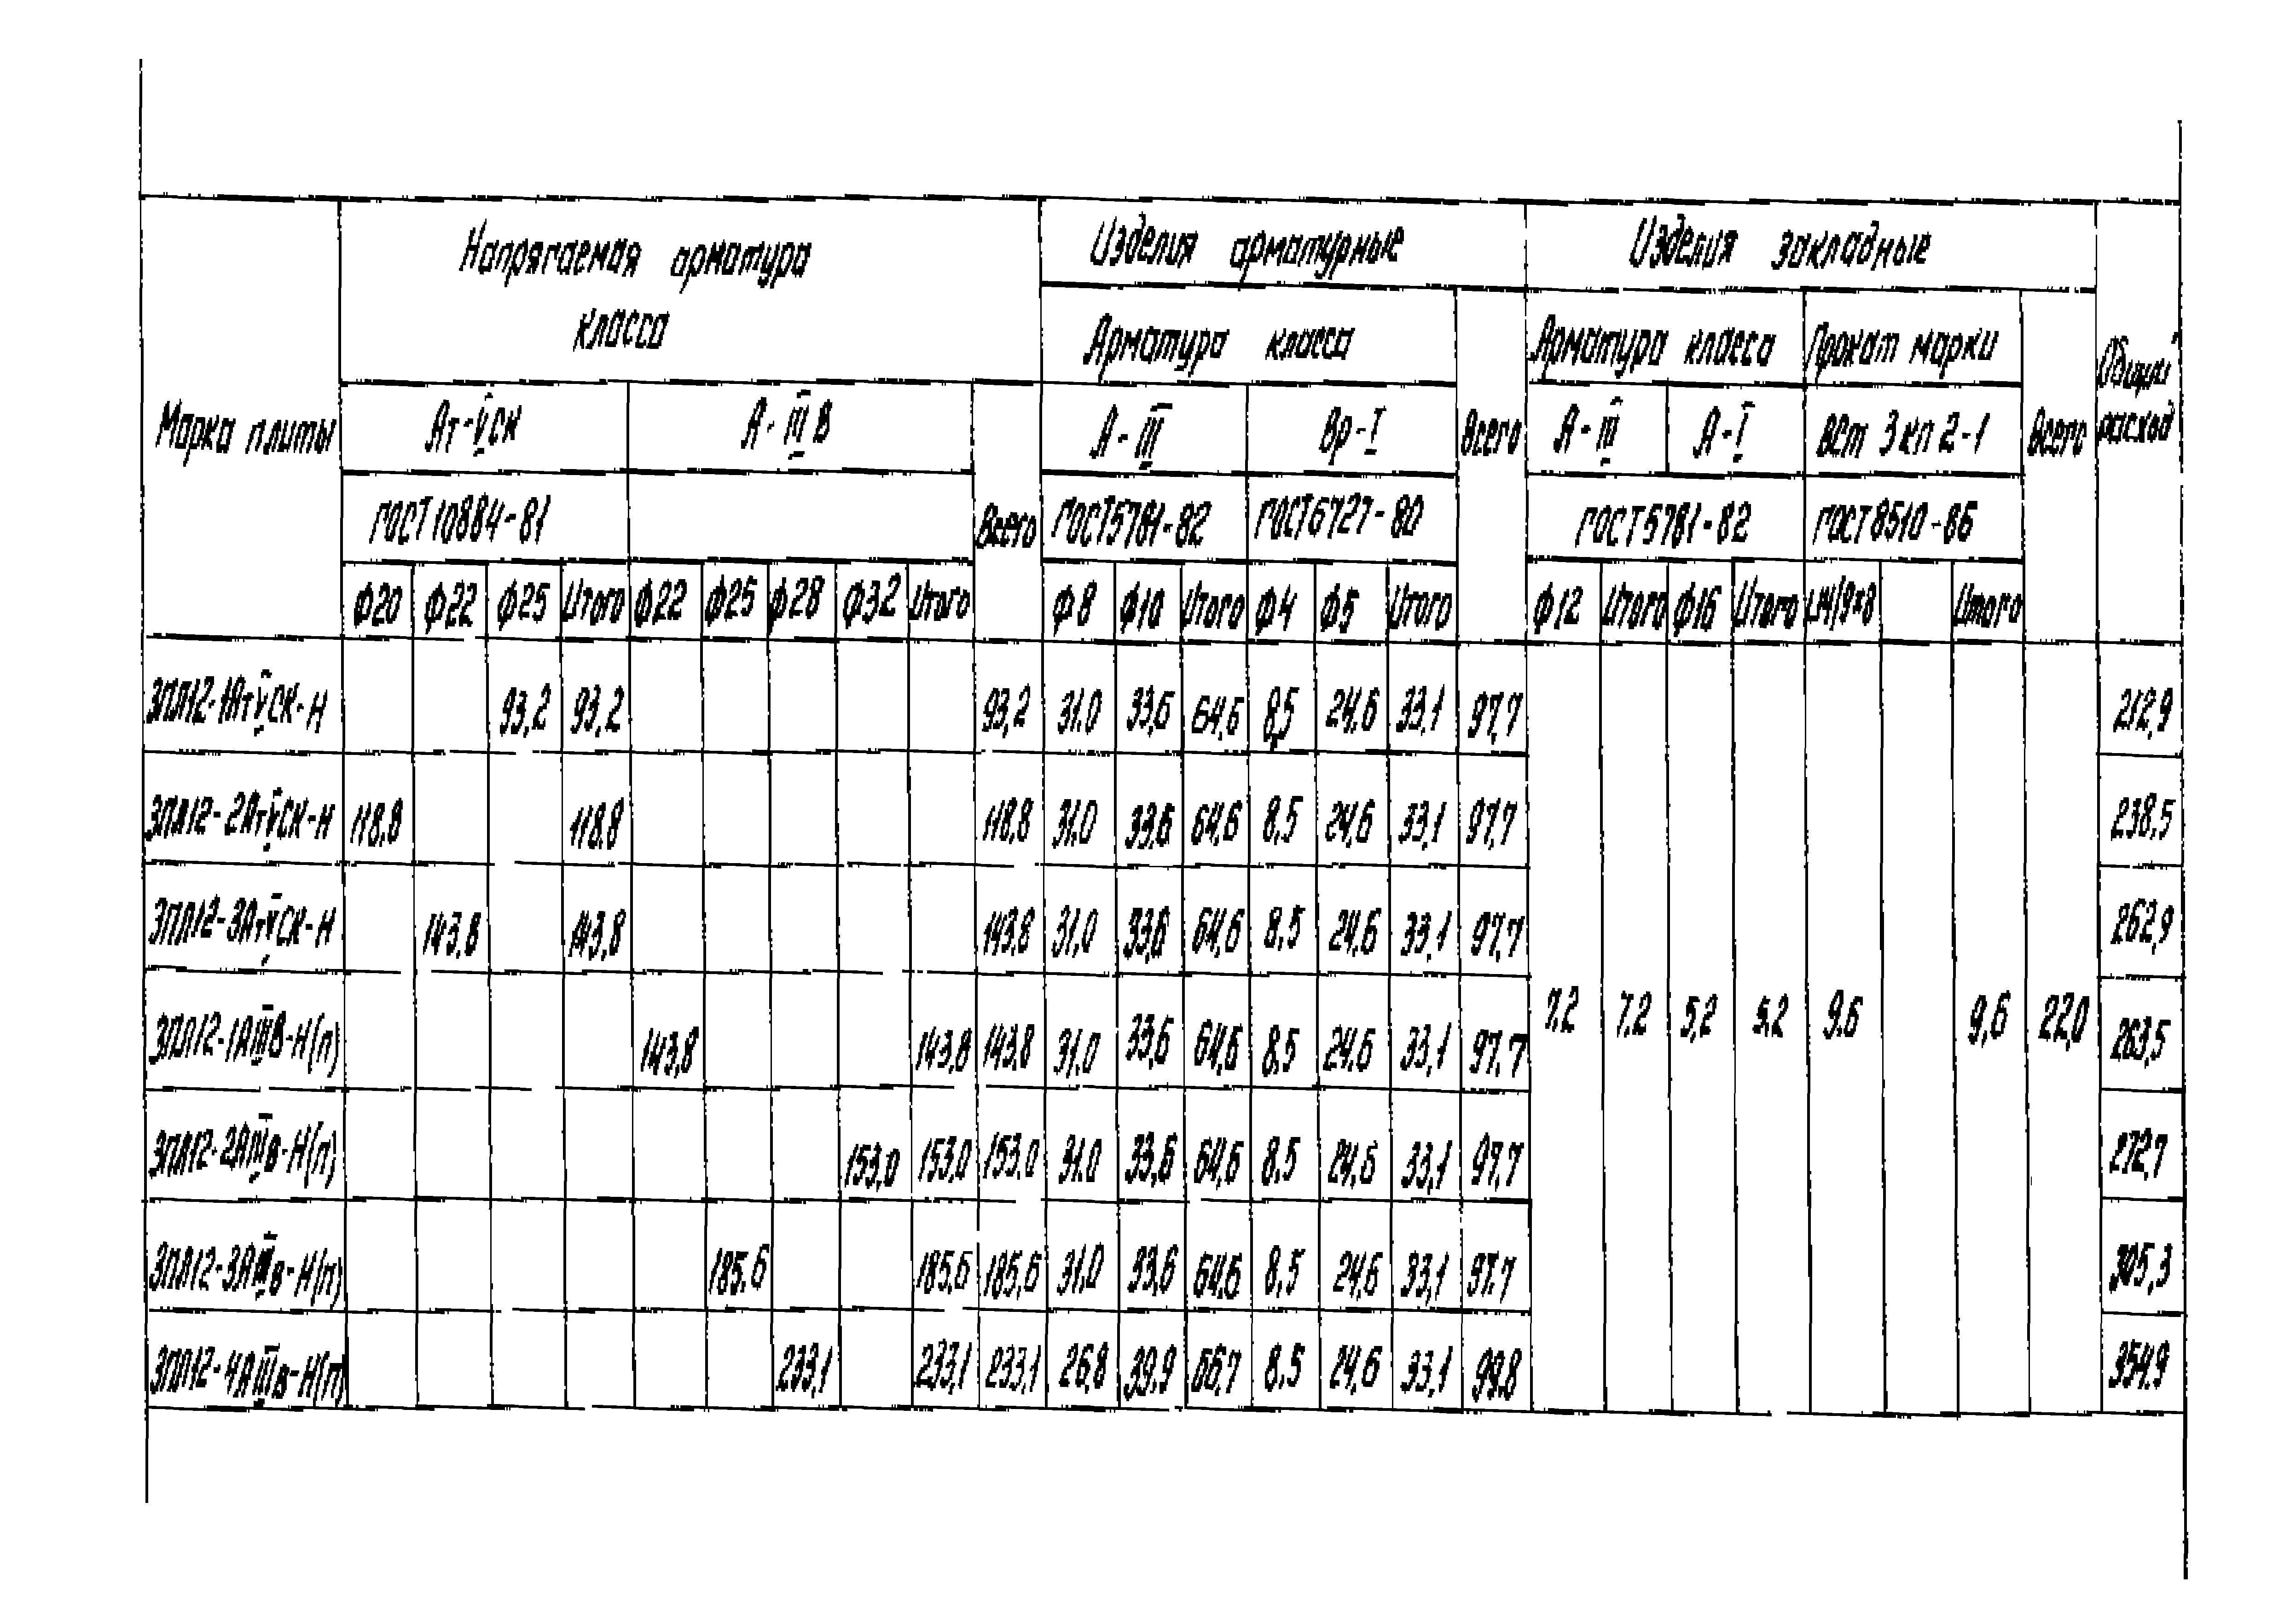 Марка плиты
Напрягаемая арматура
класса
Изделия арматурные
Изделия закладные
Общий
расход
Арматура класса
Арматура класса
Прокат марки
Ат-Vск
А-IIIВ
Всего
А-III
Вр-I
Всего
А-III
А-I
ВСт 3кп2-1
Всего
ГОСТ10884-81
ГОСТ5781-82
ГОСТ6727-80
ГОСТ5781-82
ГОСТ8510-86
Ф20 Ф22 Ф25 Итого Ф22 Ф25 Ф28 Ф32 Итого Ф8 Ф10 Итого Ф4 Ф5 Итого Ф12 Итого Ф16 Итого Итого
3ПЛ12-1АтVСК-Н 93,2 93,2 93,2 31.0 33,6 64,6 8,5 24.6 33,1 97,7 212,9
3ПЛ12-2АтVСК-Н 118.8 118.8 118,8 31.0 33,6 64,6 8,5 24,6 33,1 97,7 238,5
3ПЛ12-3АтVСК-Н 143,8 143,8 143,8 31,0 33,6 64,6 8,5 24,6 33,1 97,7 262,9
3ПЛ12-1АIIIВ-Н(п) 143,8 143,8 143,8 31,0 33,6 64,6 8,5 24,6 33,1 97,7 7,2 7,2 5,2 5,2 9.6 9,6 22,0 263,5
3ПЛ12-2АIIIв-Н(п) 153,0 153,0 153,0 31.0 33,6 64,6 8,5 24,6 33,1 97,7 272,7
3ПЛ12-3АIIIв-Н(п) 185.6 185,6 185,6 31,0 33,6 64,6 8,5 24,6 33,1 97,7 305,3
3ПЛ12-4АIIIв-Н(п) 233,1 233,1 233,1 26,8 39,9 66,7 8,5 24,6 33,1 99.8 354,9